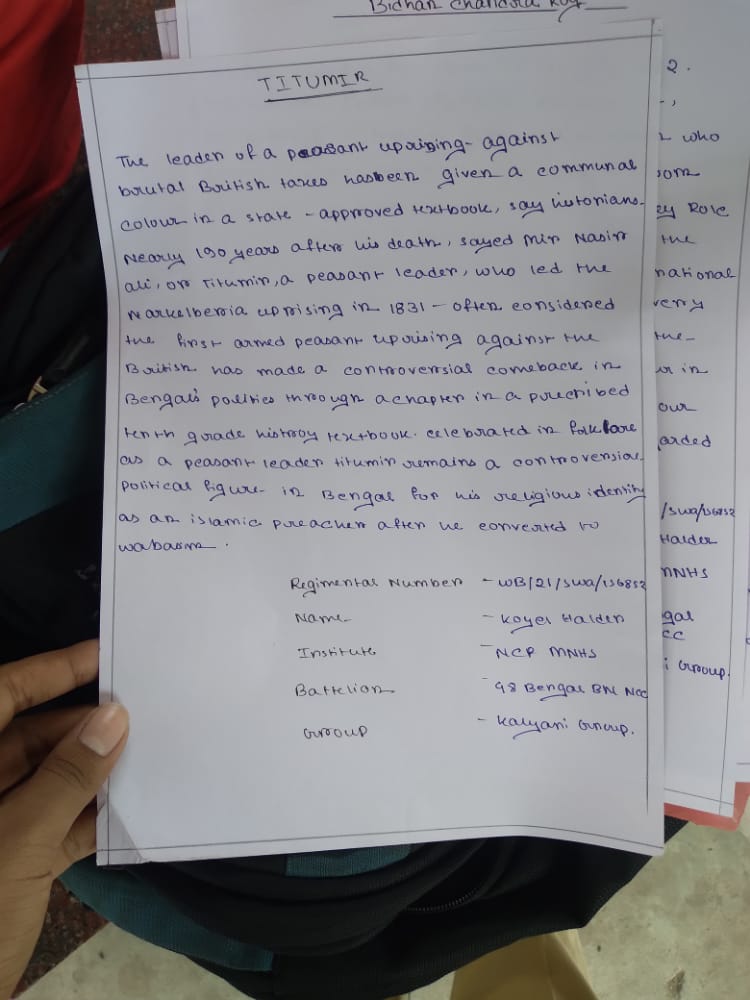 Bidhan Chandra Roy
TITUMIR
The leader of a peasant uprising - against
brutal British taxes hasbeen given a communal
colour in a state - approved textbook, say historians.
Nearly 190 years after his death, sayed mir Nasir
ali, or Titumir, a peasant leader, who led the
Narkelberia uprising in 1831 - often considered
the first armed peasant uprising against the
British has made a controversial comeback in
Bengal's politics through a chapter in a precribed
tenth grade histroy textbook. celebrated in folklore
as a peasant leader titumir remains a controversial
political figure - in Bengal for his religious identity
as an islamic preacher after he converted to
wabasm.
Regimental Number - WB/21/SWA/156852
Name - Koyel Halder
Institute - NCP MNHS
Battelion - 48 Bengal BN NCC
Group - Kalyani Group.
2.
who
ey Role
the
national
very
the-
in
our
arded
/SWA/156852
Halder
MNHS
gal
CC
i Group.